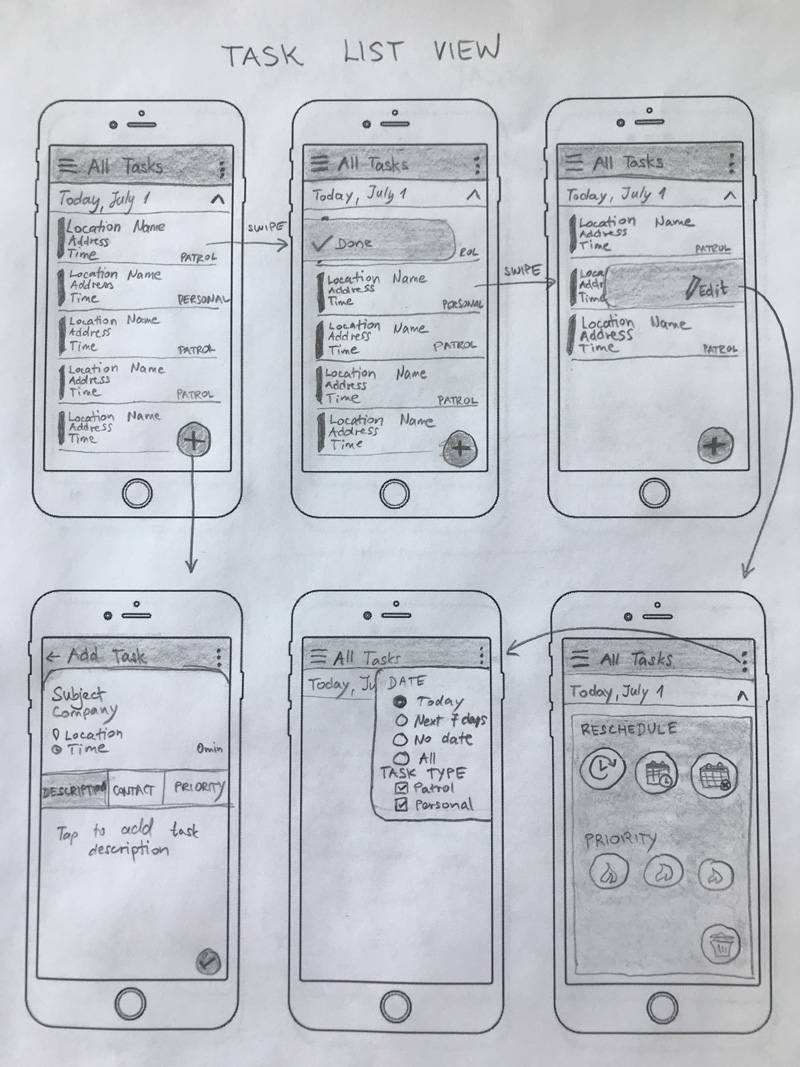 TASK LIST VIEW
All Tasks
Today, July 1
Location Name
Address
Time
PATROL
Location Name
Address
Time
PERSONAL
Location Name
Address
Time
PATROL
Location Name
Address
Time
PATROL
Location Name
Address
Time
SWIPE
All Tasks
Today, July 1
Done
ROL
Location Name
Address
Time
PERSONAL
Location Name
Address
Time
PATROL
Location Name
Address
Time
PATROL
Location Name
Address
Time
SWIPE
All Tasks
Today, July 1
Location Name
Address
Time
PATROL
Loca
Addr
Time
Edit
Location Name
Address
Time
PATROL
Add Task
Subject
Company
Location
Time 0min
DESCRIPTION CONTACT PRIORITY
Tap to add task
description
All Tasks
Today, Ju
DATE
Today
Next 7 days
No date
All
TASK TYPE
Patrol
Personal
All Tasks
Today, July 1
RESCHEDULE
PRIORITY